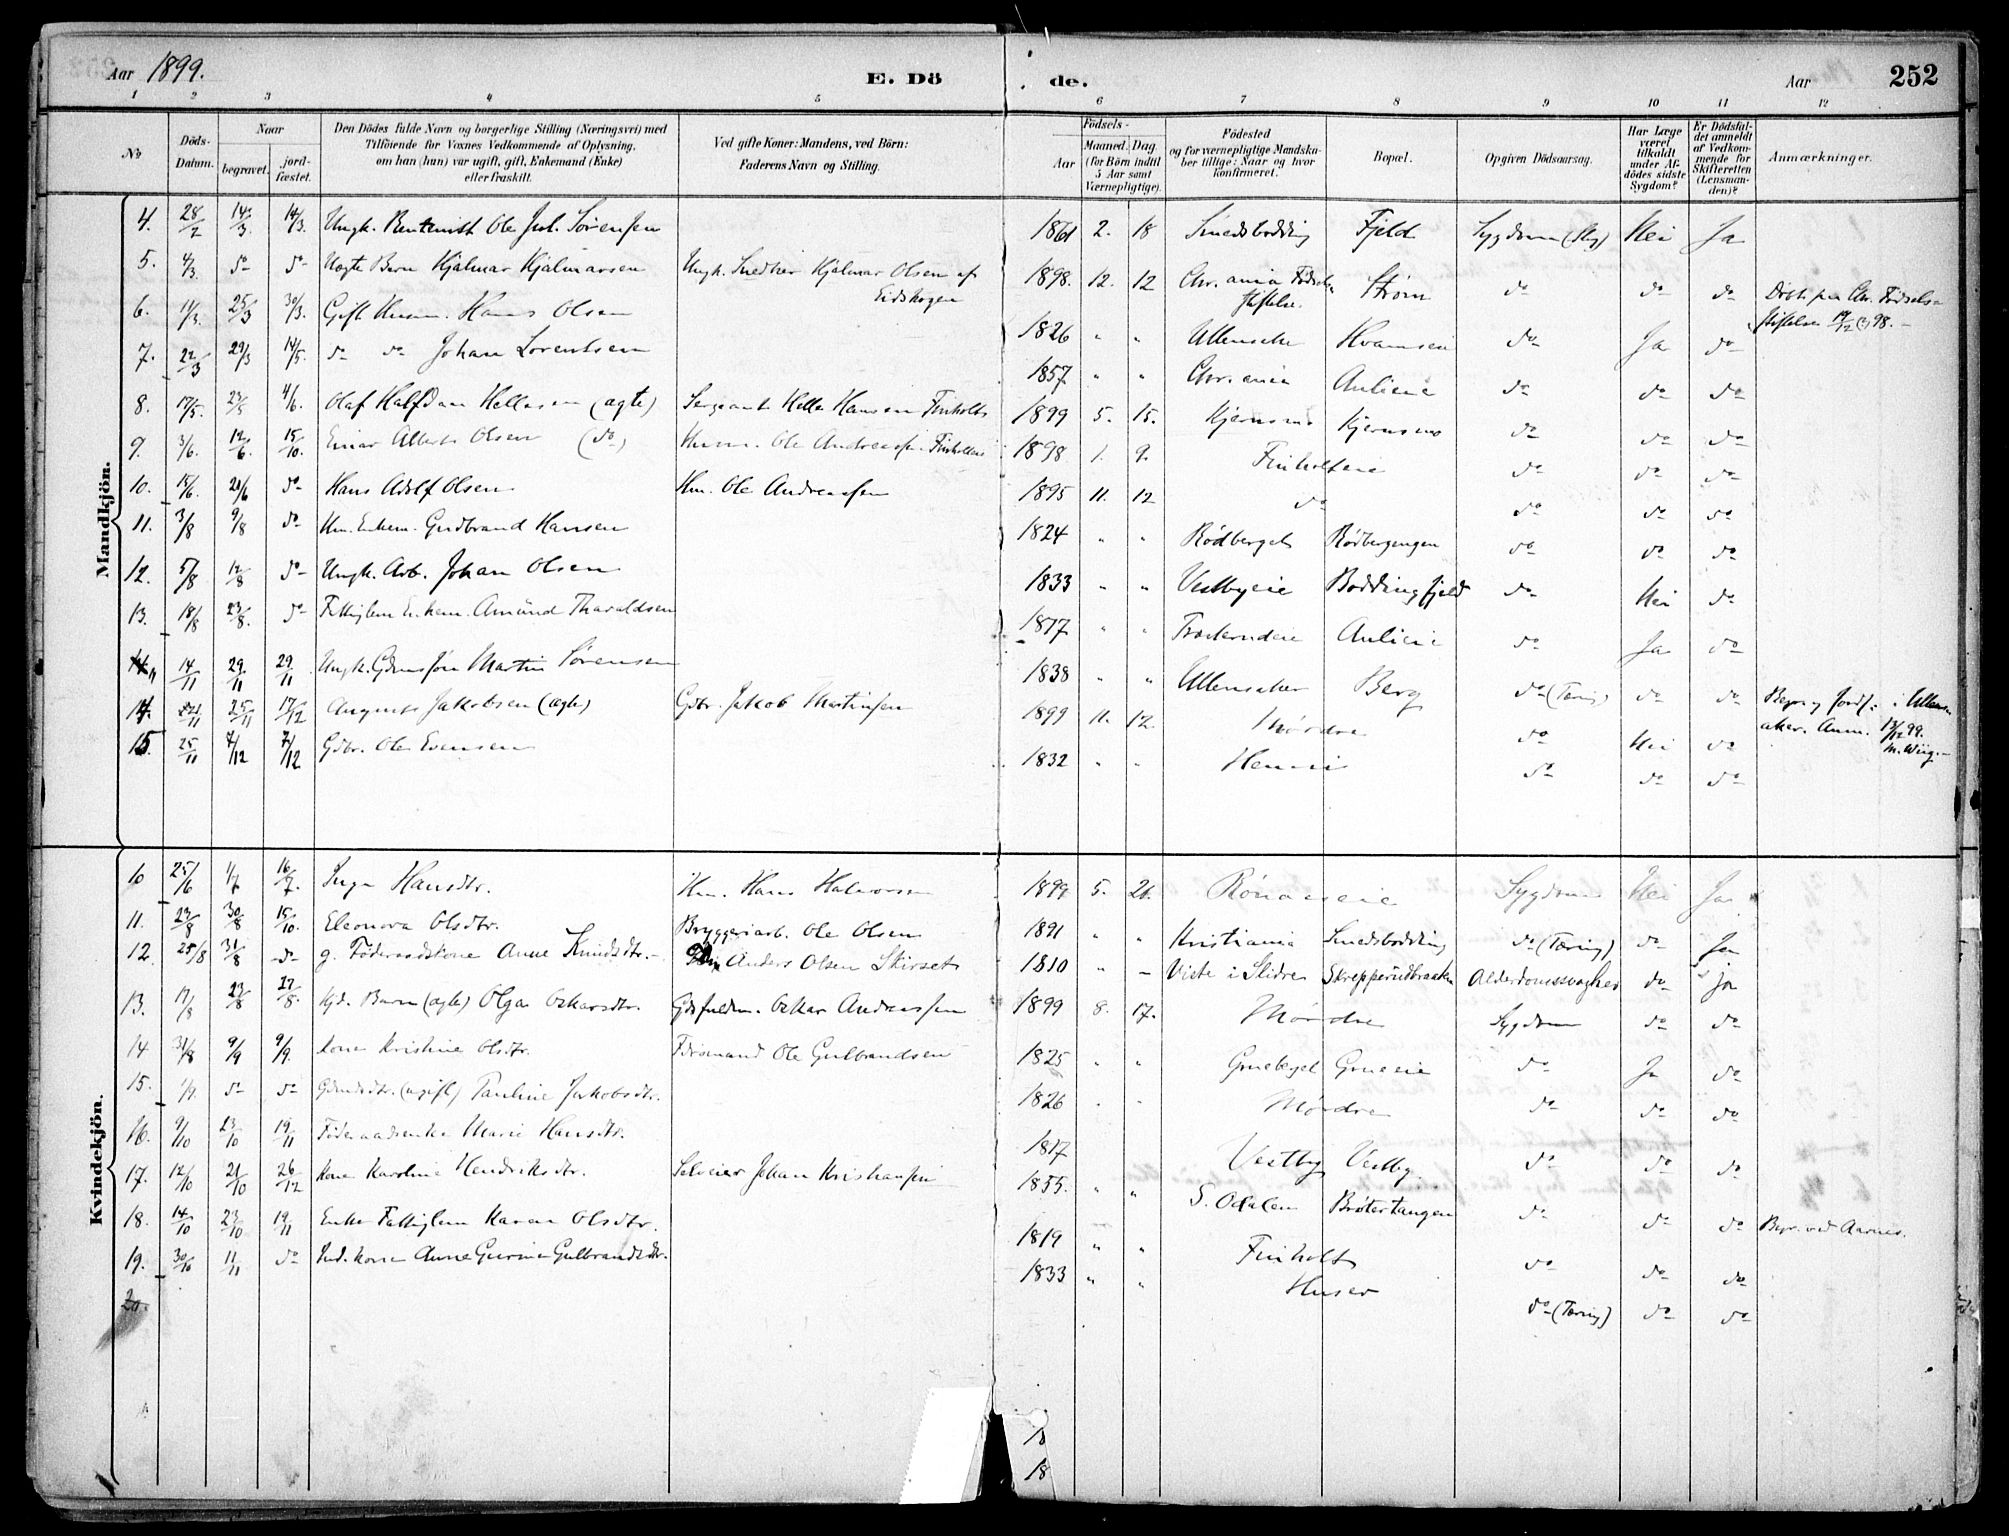 Aar 1899. E. Dö de. Aar 252
1 2 3 4 5 6 7 8 9 10 11 12
No Döds-Datum. Naar begravet. jord-fæstet. Den Dödes fulde Navn og borgerlige Stilling (Næringsvei) med Tilföiende for Voxnes Vedkommende af Oplysning, om han (hun) var ugift, gift, Enkemand (Enke) eller fraskilt. Ved gifte Koner: Mandens, ved Börn: Faderens Navn og Stilling. Födsels- Aar Maaned. Dag. (for Börn indtil 5 Aar samt Værnepligtige). Födested og for værnepligtige Mandska-ber tillige: Naar og hvor konfirmeret. Bopæl. Opgiven Dödsaarsag. Har Læge været tilkaldt under Af-dödes sidste Sygdom? Er Dödsfal-det anmeldt af Vedkom-mende for Skifteretten (Lensman-den)? Anmærkninger.
Mandkjön.
4. 28/2 14/3. 14/3. Ungk. Ole Jul. Sörensen 1861 2. 18 Smedsbodding Fjeld Sygdom Nei Ja
5. 4/3. do do Uægte Barn Hjalmar Hjalmarsen Ungk. Snedker Hjalmar Olsen af Eidskogen 1898. 12. 12 Chr.ania Födsels stiftelse. Ström do do do Döbt paa Chr. Födsels-stiftelse 19/12 98.
6. 11/3. 25/3 30/3. Gift Husm. Hans Olsen 1826 " " Ullensaker Hvamseie do Ja do
7. 22/3 29/3 14/5. do do Johan Lorentsen 1857 " " Chr.ania Aulieie do do do
8. 17/5. 23/5 4/6. Olaf Halfdan Hellesen (ægte) Sergeant Helle Hansen Finholt 1899 5. 15. Kjernsmo Kjernsmo do do do
9. 3/6. 12/6. 15/10. Einar Albert Olsen (do) Husm. Ole Andreassen Finholteie 1898 1. 9. Finholteie do do do
10. 15/6. 20/6 do Hans Adolf Olsen Hm. Ole Andreassen 1895 11. 12 do do do do
11. 3/8 9/8 do Hm. Enkem. Gudbrand Hansen 1824 " " Rödberget Rödbergengen do do do
12. 5/8 12/8 do Ungk. Arb. Johan Olsen 1833 " " Vestbyeie Boddingfjeld do Nei do
13. 18/8 23/8. do Fattiglem Enkem. Amünd Tharaldsen 1817 " " Aulieie do Ja do
14/11 29/11 29/11 Ungk. Gdmssön Martin Sörensen 1838 " " Ullensaker Berg do (Tæring) do do Begr. og jordf. i Ullens-aker. Anm. 13/12 99. M. Wiig.
14. 25/11 17/12 August Jakobsen (ægte) Gdbr. Jakob Martinsen 1899 11. 12. Mördre do Nei do
15. 25/11 7/12 7/12 Gdbr. Ole Evensen 1832 " " Hennie do do do
Kvindekjön.
10 25/6 1/7 16/7. Inga Hansdtr. Hm. Hans Halvorsen 1899 5. 26. Rönaaseie Sygdom Nei Ja
11. 23/8 30/8 15/10. Eleonora Olsdtr. Bryggeriarb. Ole Olsen 1891 " " Kristiania Smedsbodding do (Tæring) do Ja
12. 25/8 31/8 do g. Föderaadskone Anne Knudsdtr. Anders Olsen Skirset 1810 " – i Slidre Skrepperudbraaten Alderdomssvaghed do ja
13. 17/8 23/8 27/8. Olga Oskarsdtr. Oskar Andreassen 1899 8. 17. Mördre Sygdom do do
14 31/8 9/9 9/9. Kone Kristine Olsdtr. Ole Gulbrandsen 1825 " " Grueberget Grueeie do Ja do
15. 1/9. do do Gdmdsdtr. (ugift) Pauline Jakobsdtr. 1826 " " Mördre do do do
16. 9/10 23/10 19/11 Föderaadsenke Marie Hansdtr. 1817 Vestby Vestby do do do
17. 12/10 21/10 26/12 Kone Karoline Hendriksdtr. Selveier Johan Kristiansen 1855. " " S. Odalen Brötertangen do do do
18. 14/10 23/10 19/11 Enke Fattiglem Karen Olsdtr. 1819 " " Finholt do do do Begr. ved Aarnes.
19. 30/10 11/11 do Ind. kone Anne Gurine Gulbrandsdtr. 1833 " " Huser do (Tæring) do do
20.
18
18